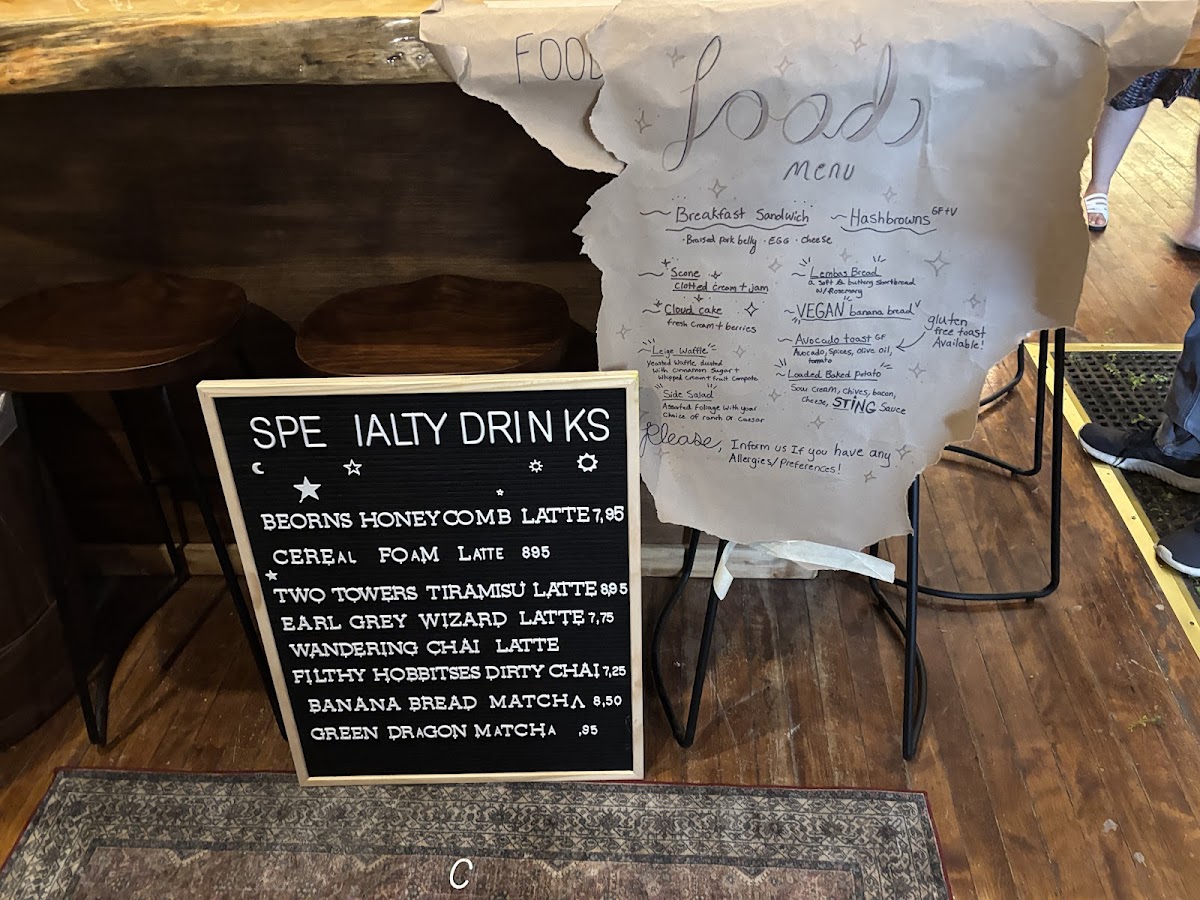 FOOD
food
menu
~ Breakfast Sandwich
· Braised pork belly · EGG · Cheese
~ Hashbrowns GF+V
~ Scone
Clotted cream + jam
~ Cloud cake
fresh cream + berries
~ Leige Waffle
Yeasted waffle dusted
with cinnamon sugar +
whipped cream + fruit compote
Side Salad
Assorted foliage with your
choice of ranch or caesar
~ Lembas Bread
a soft & buttery shortbread
w/ Rosemary
~ VEGAN banana bread V
~ Avocado toast GF
Avocado, Spices, olive oil,
tomato
gluten
free toast
Available!
~ Loaded Baked potato
Sour cream, chives, bacon,
cheese, STING Sauce
Please, Inform us If you have any
Allergies/Preferences!
SPE IALTY DRINKS
BEORNS HONEYCOMB LATTE 7,95
CEREAL FOAM LATTE 895
TWO TOWERS TIRAMISU LATTE 895
EARL GREY WIZARD LATTE 7,75
WANDERING CHAI LATTE
FILTHY HOBBITSES DIRTY CHAI 7,25
BANANA BREAD MATCHA 8,50
GREEN DRAGON MATCHA ,95
C